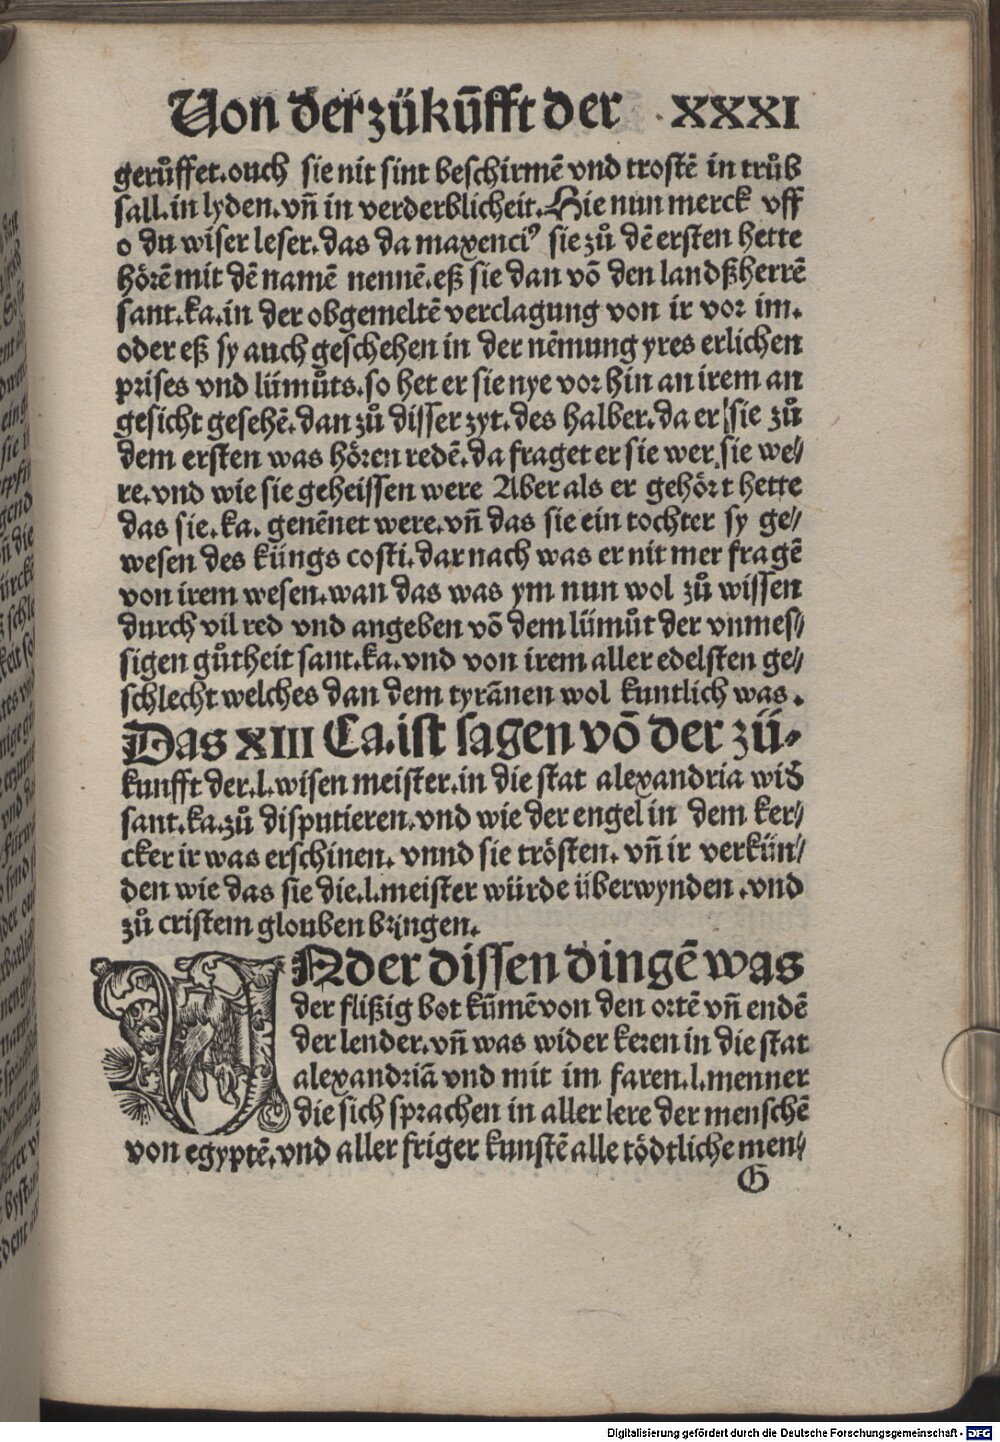 Von der zükūfft der XXXI
gerůffet. ouch sie nit sint beschirmē vnd trostē in trůb
sall. in lyden. vn̄ in verderblicheit. Hie nun merck vff
o du wiser leser. das da maxenciꝰ sie zů dē ersten hette
hörē mit dē namē nennē. eß sie dan vō den landßherrē
sant. ka. in der obgemeltē verclagung von ir vor im.
oder eß sy auch geschehen in der nēmung yres erlichen
prises vnd lümůts. so het er sie nye vor hin an irem an
gesicht gesehē. dan zů disser zyt. des halber. da er sie zů
dem ersten was hören redē. da fraget er sie wer sie we/
re. vnd wie sie geheissen were Aber als er gehört hette
das sie. ka. genēnet were. vn̄ das sie ein tochter sy ge/
wesen des küngs costi. dar nach was er nit mer fragē
von irem wesen. wan das was ym nun wol zů wissen
durch vil red vnd angeben vō dem lümůt der vnmes/
sigen gůtheit sant. ka. vnd von irem aller edelsten ge/
schlecht welches dan dem tyrānen wol kuntlich was.
Das XIII Ca. ist sagen vō der zü-
kunfft der. l. wisen meister. in die stat alexandria wið
sant. ka. zů disputieren. vnd wie der engel in dem ker/
cker ir was erschinen. vnnd sie trösten. vn̄ ir verkün/
den wie das sie die. l. meister würde überwynden. vnd
zů cristem glouben bringen.
VNder dissen dingē was
der flißig bot kūmē von den ortē vn̄ endē
der lender. vn̄ was wider keren in die stat
alexandriā vnd mit im faren. l. menner
die sich sprachen in aller lere der menschē
von egyptē. vnd aller friger kunstē alle tödtliche men/
G
Digitalisierung gefördert durch die Deutsche Forschungsgemeinschaft - DFG